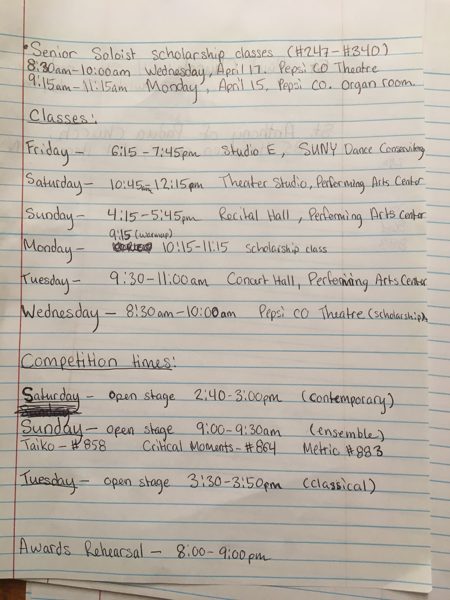 • Senior Soloist scholarship classes (#247-#340)
8:30am-10:00am Wednesday, April 17. Pepsi CO Theatre
9:15am-11:15am Monday, April 15, Pepsi CO. organ room.
Classes:
Friday - 6:15-7:45pm Studio E, SUNY Dance Conservatory
Saturday - 10:45am-12:15pm Theater Studio, Performing Arts Center
Sunday - 4:15-5:45pm Recital Hall, Performing Arts Center
9:15 (warmup)
Monday - 10:15-11:15 scholarship class
Tuesday - 9:30-11:00am Concert Hall, Performing Arts Center
Wednesday - 8:30am-10:00am Pepsi CO Theatre (scholarship)
Competition times:
Saturday - open stage 2:40-3:00pm (contemporary)
Sunday - open stage 9:00-9:30am (ensemble)
Taiko - #858 Critical Moments - #864 Metric #883
Tuesday - open stage 3:30-3:50pm (classical)
Awards Rehearsal - 8:00-9:00pm